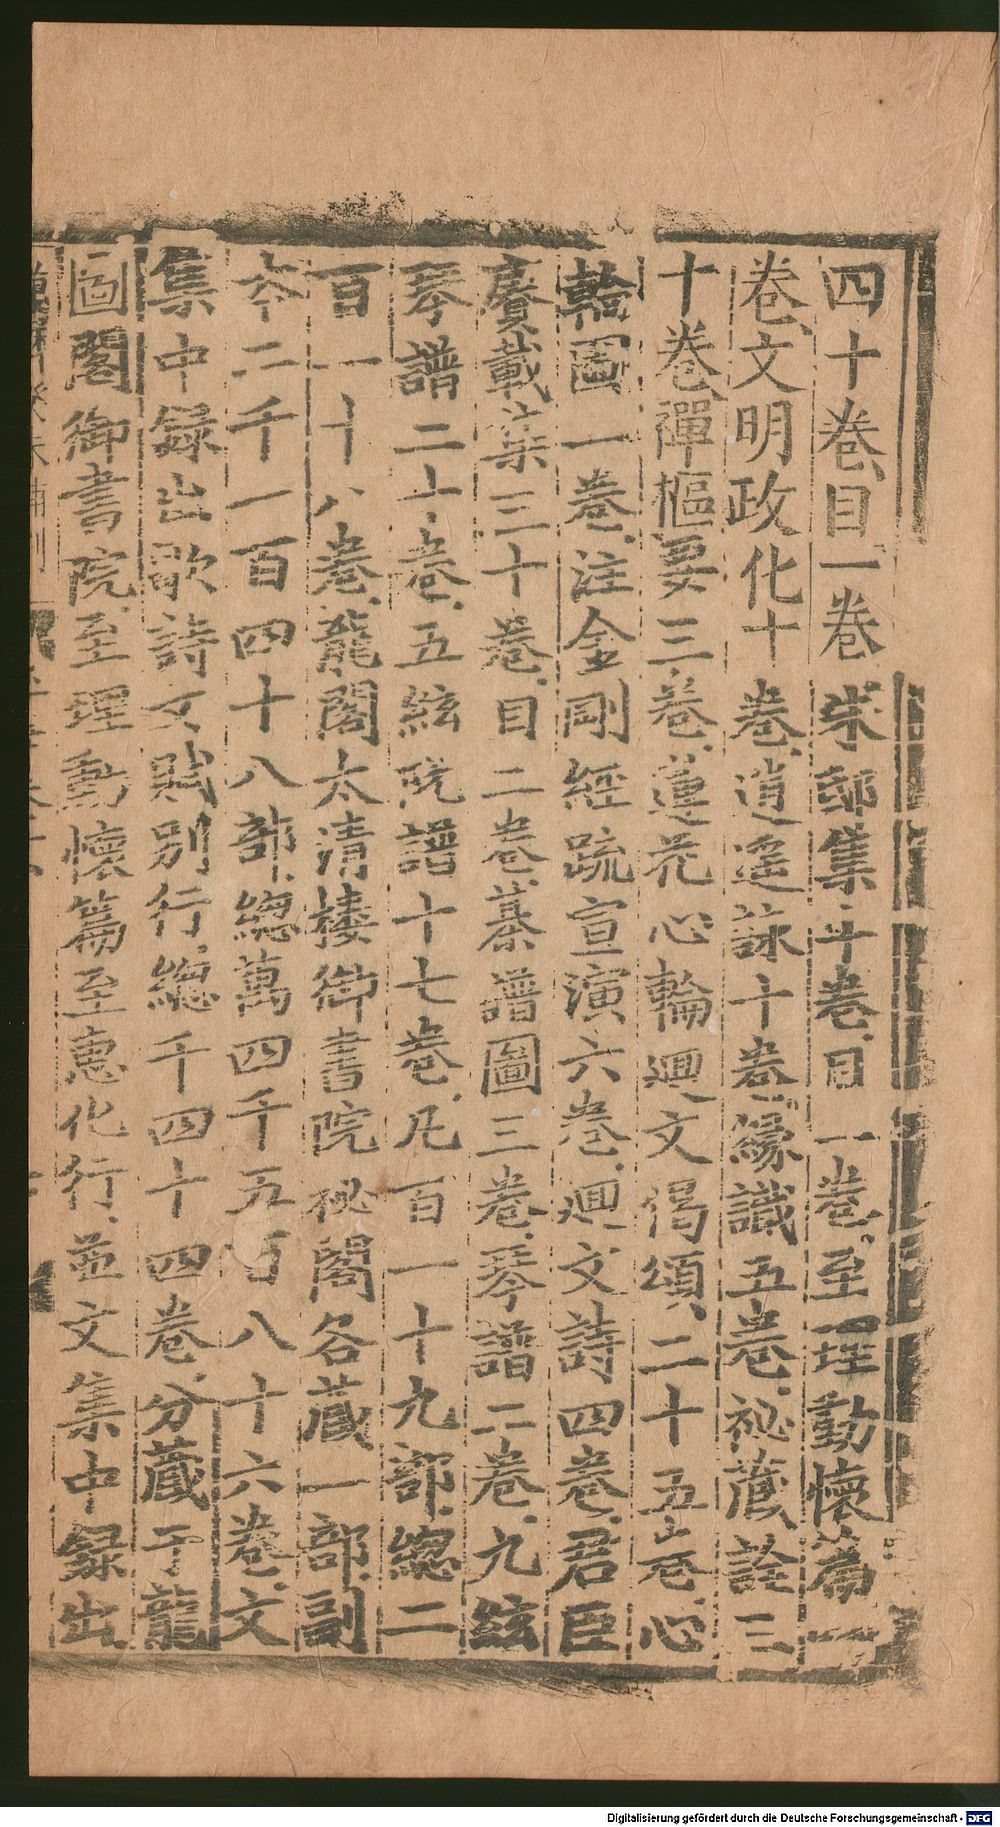 四十卷目一卷朱邸集十卷目一卷至理勤懷篇一
卷文明政化十卷逍遥詠十卷緣識五卷祕藏詮三
十卷禪樞要三卷蓮花心輪廻文偈頌二十五卷心
輪圖一卷注金剛經疏宣演六卷廻文詩四卷君臣
賡載集三十卷目二卷棊譜圖三卷琴譜二卷九絃
琴譜二十卷五絃阮譜十七卷凡百一十九部總二
百一十八卷龍閣太清樓御書院祕閣各藏一部副
夲二千一百四十八部總萬四千五百八十六卷文
集中録出歌詩文賦别行總千四十四卷分藏于龍
圖閣御書院至理勤懷篇至惠化行並文集中録出
Digitalisierung gefördert durch die Deutsche Forschungsgemeinschaft - DFG